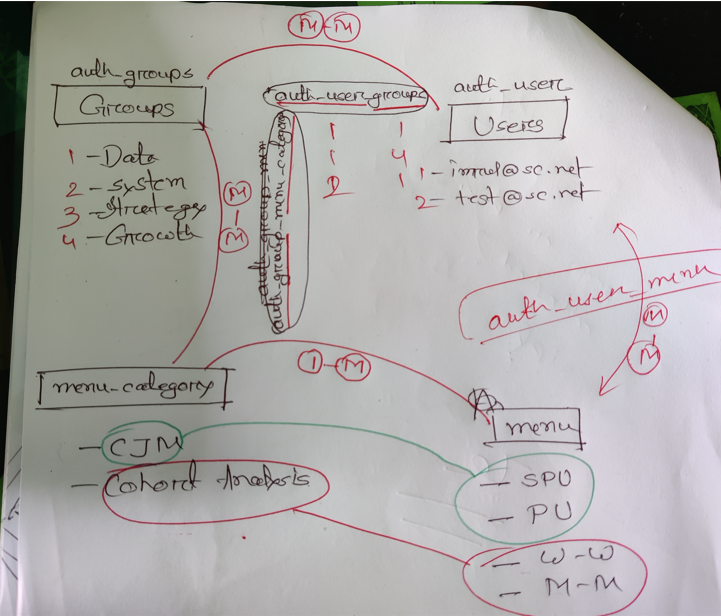 M-M
auth_groups
Groups
1 - Data
2 - system
3 - Strategy
4 - Growth
auth_user_groups
1 1
1 4
2 1
auth_group_menu_category
auth_user
Users
1 - imrul@sc.net
2 - test@sc.net
M-M
auth_user_menu
M-M
menu_category
- CJM
- Cohort Analysis
1-M
menu
- SPU
- PU
- W-W
- M-M